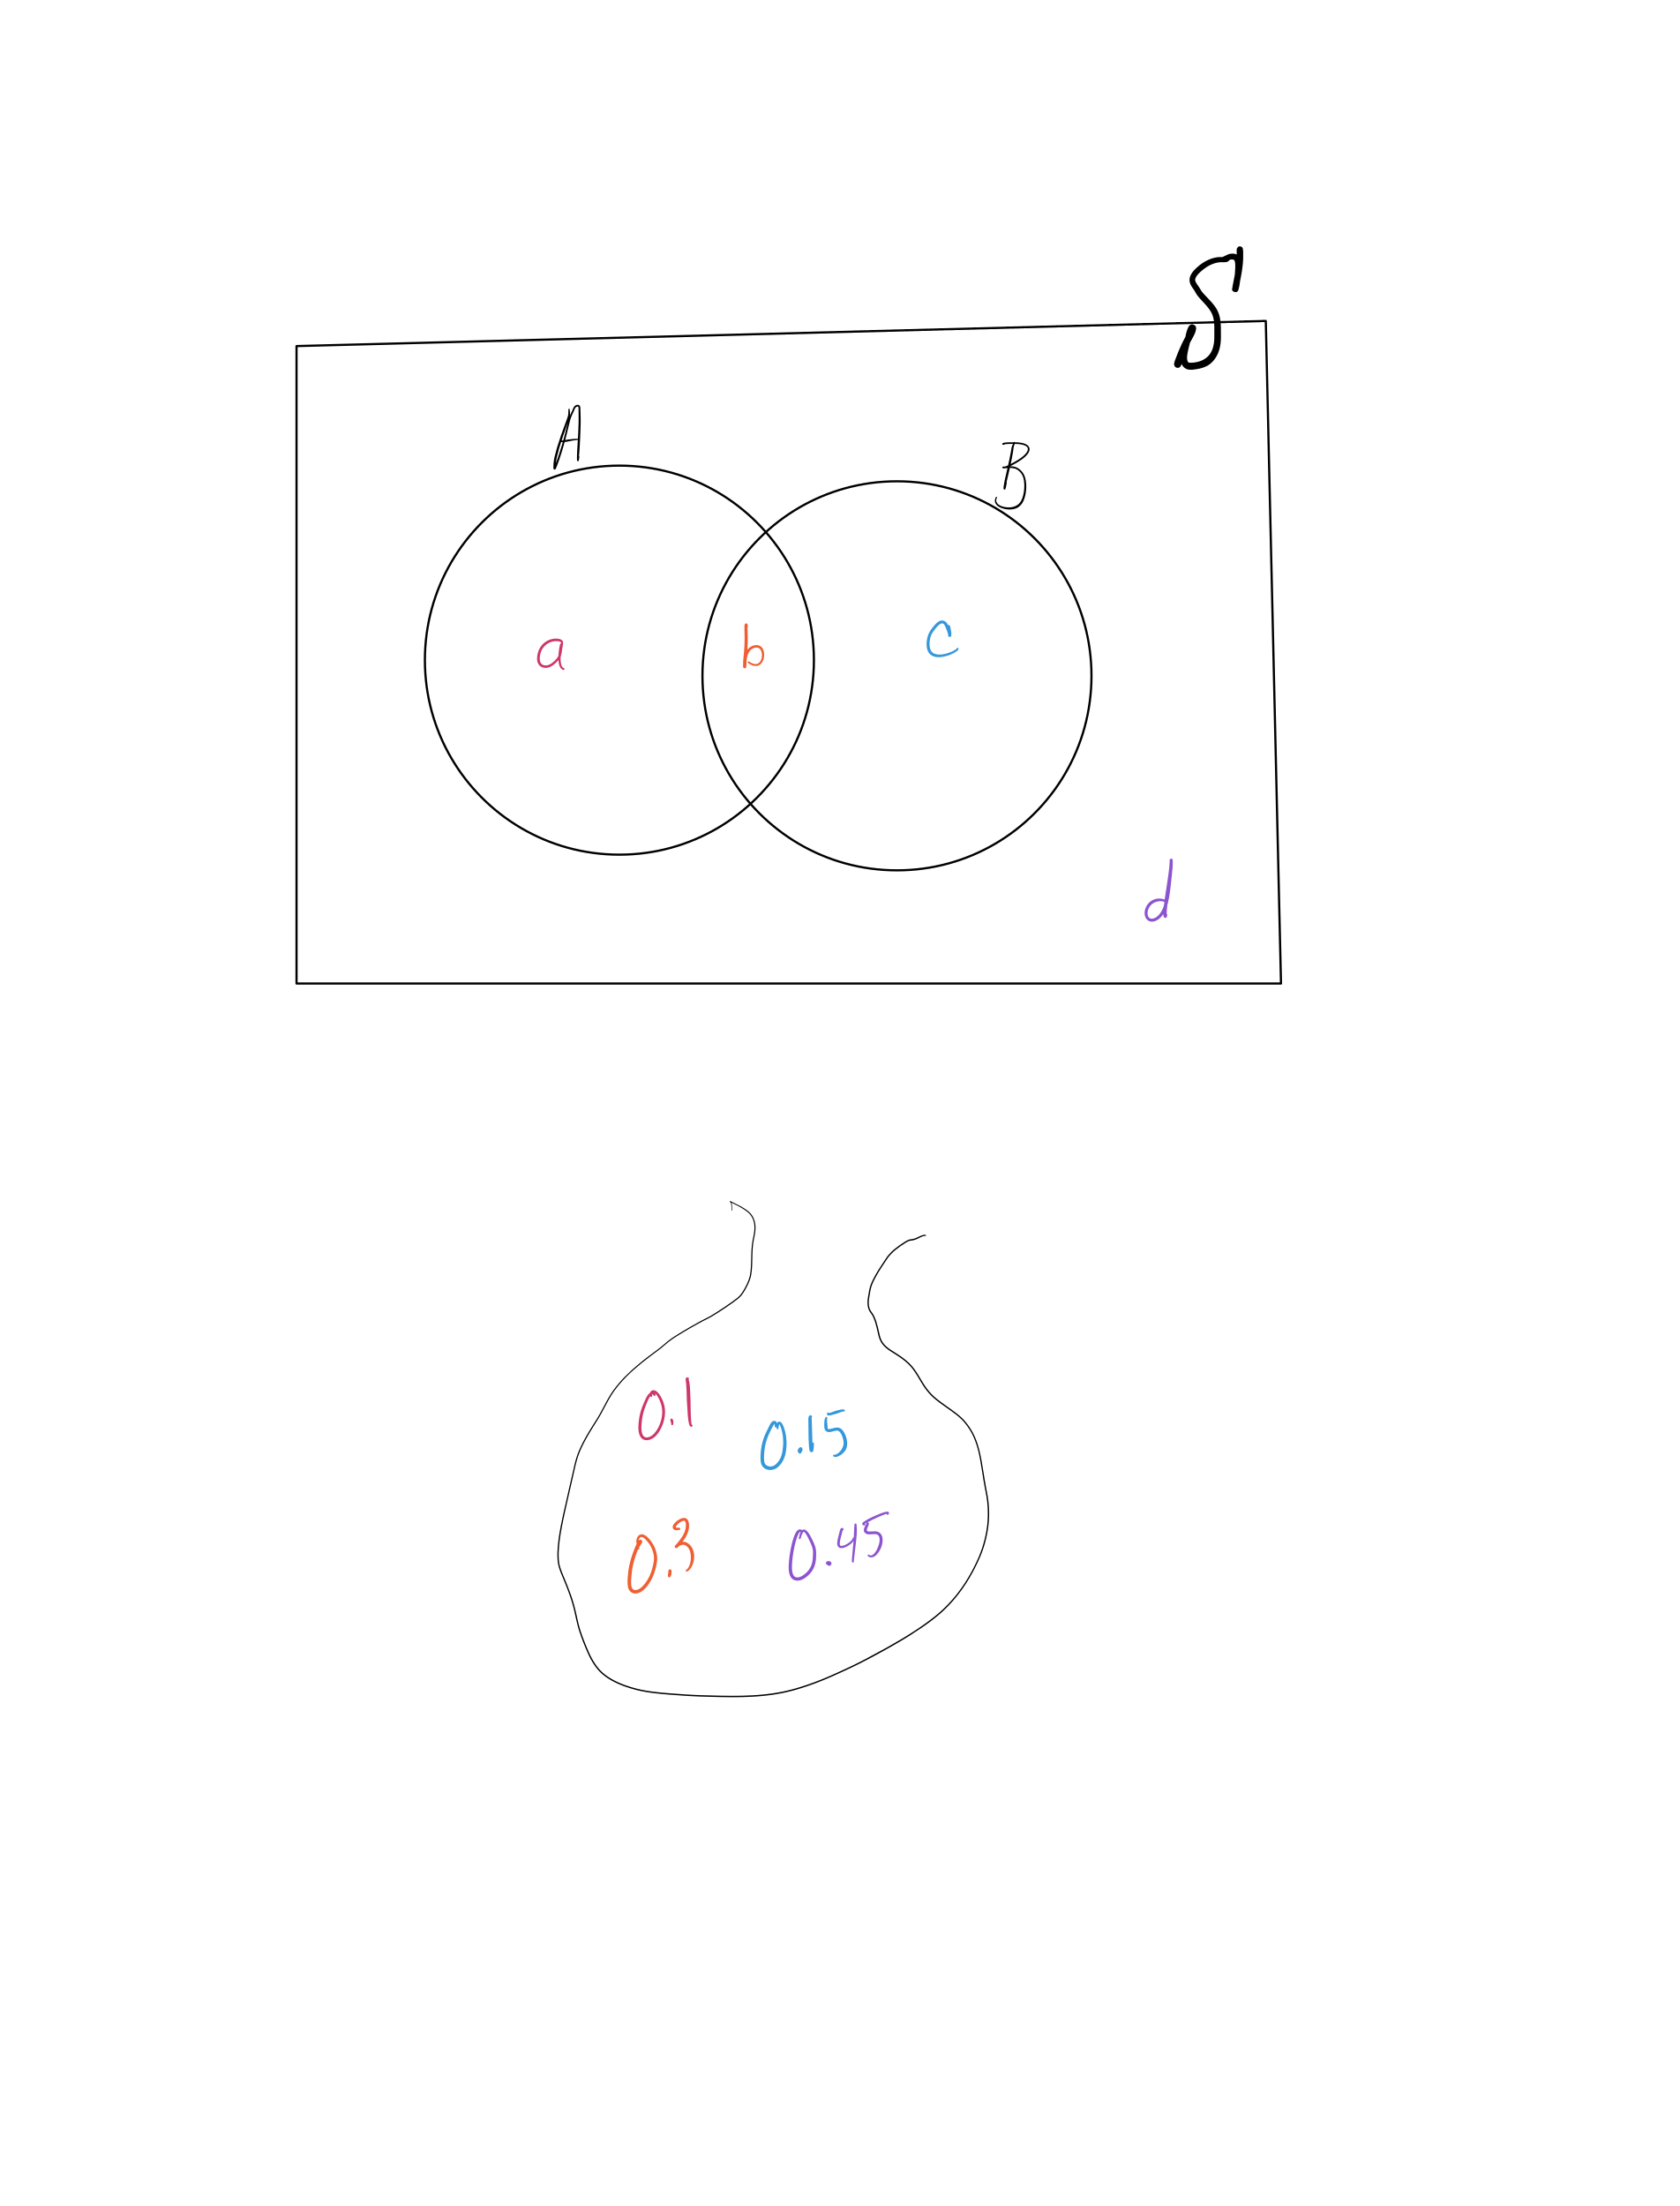 S
A
B
a b c
d
0.1
0.15
0.3
0.45